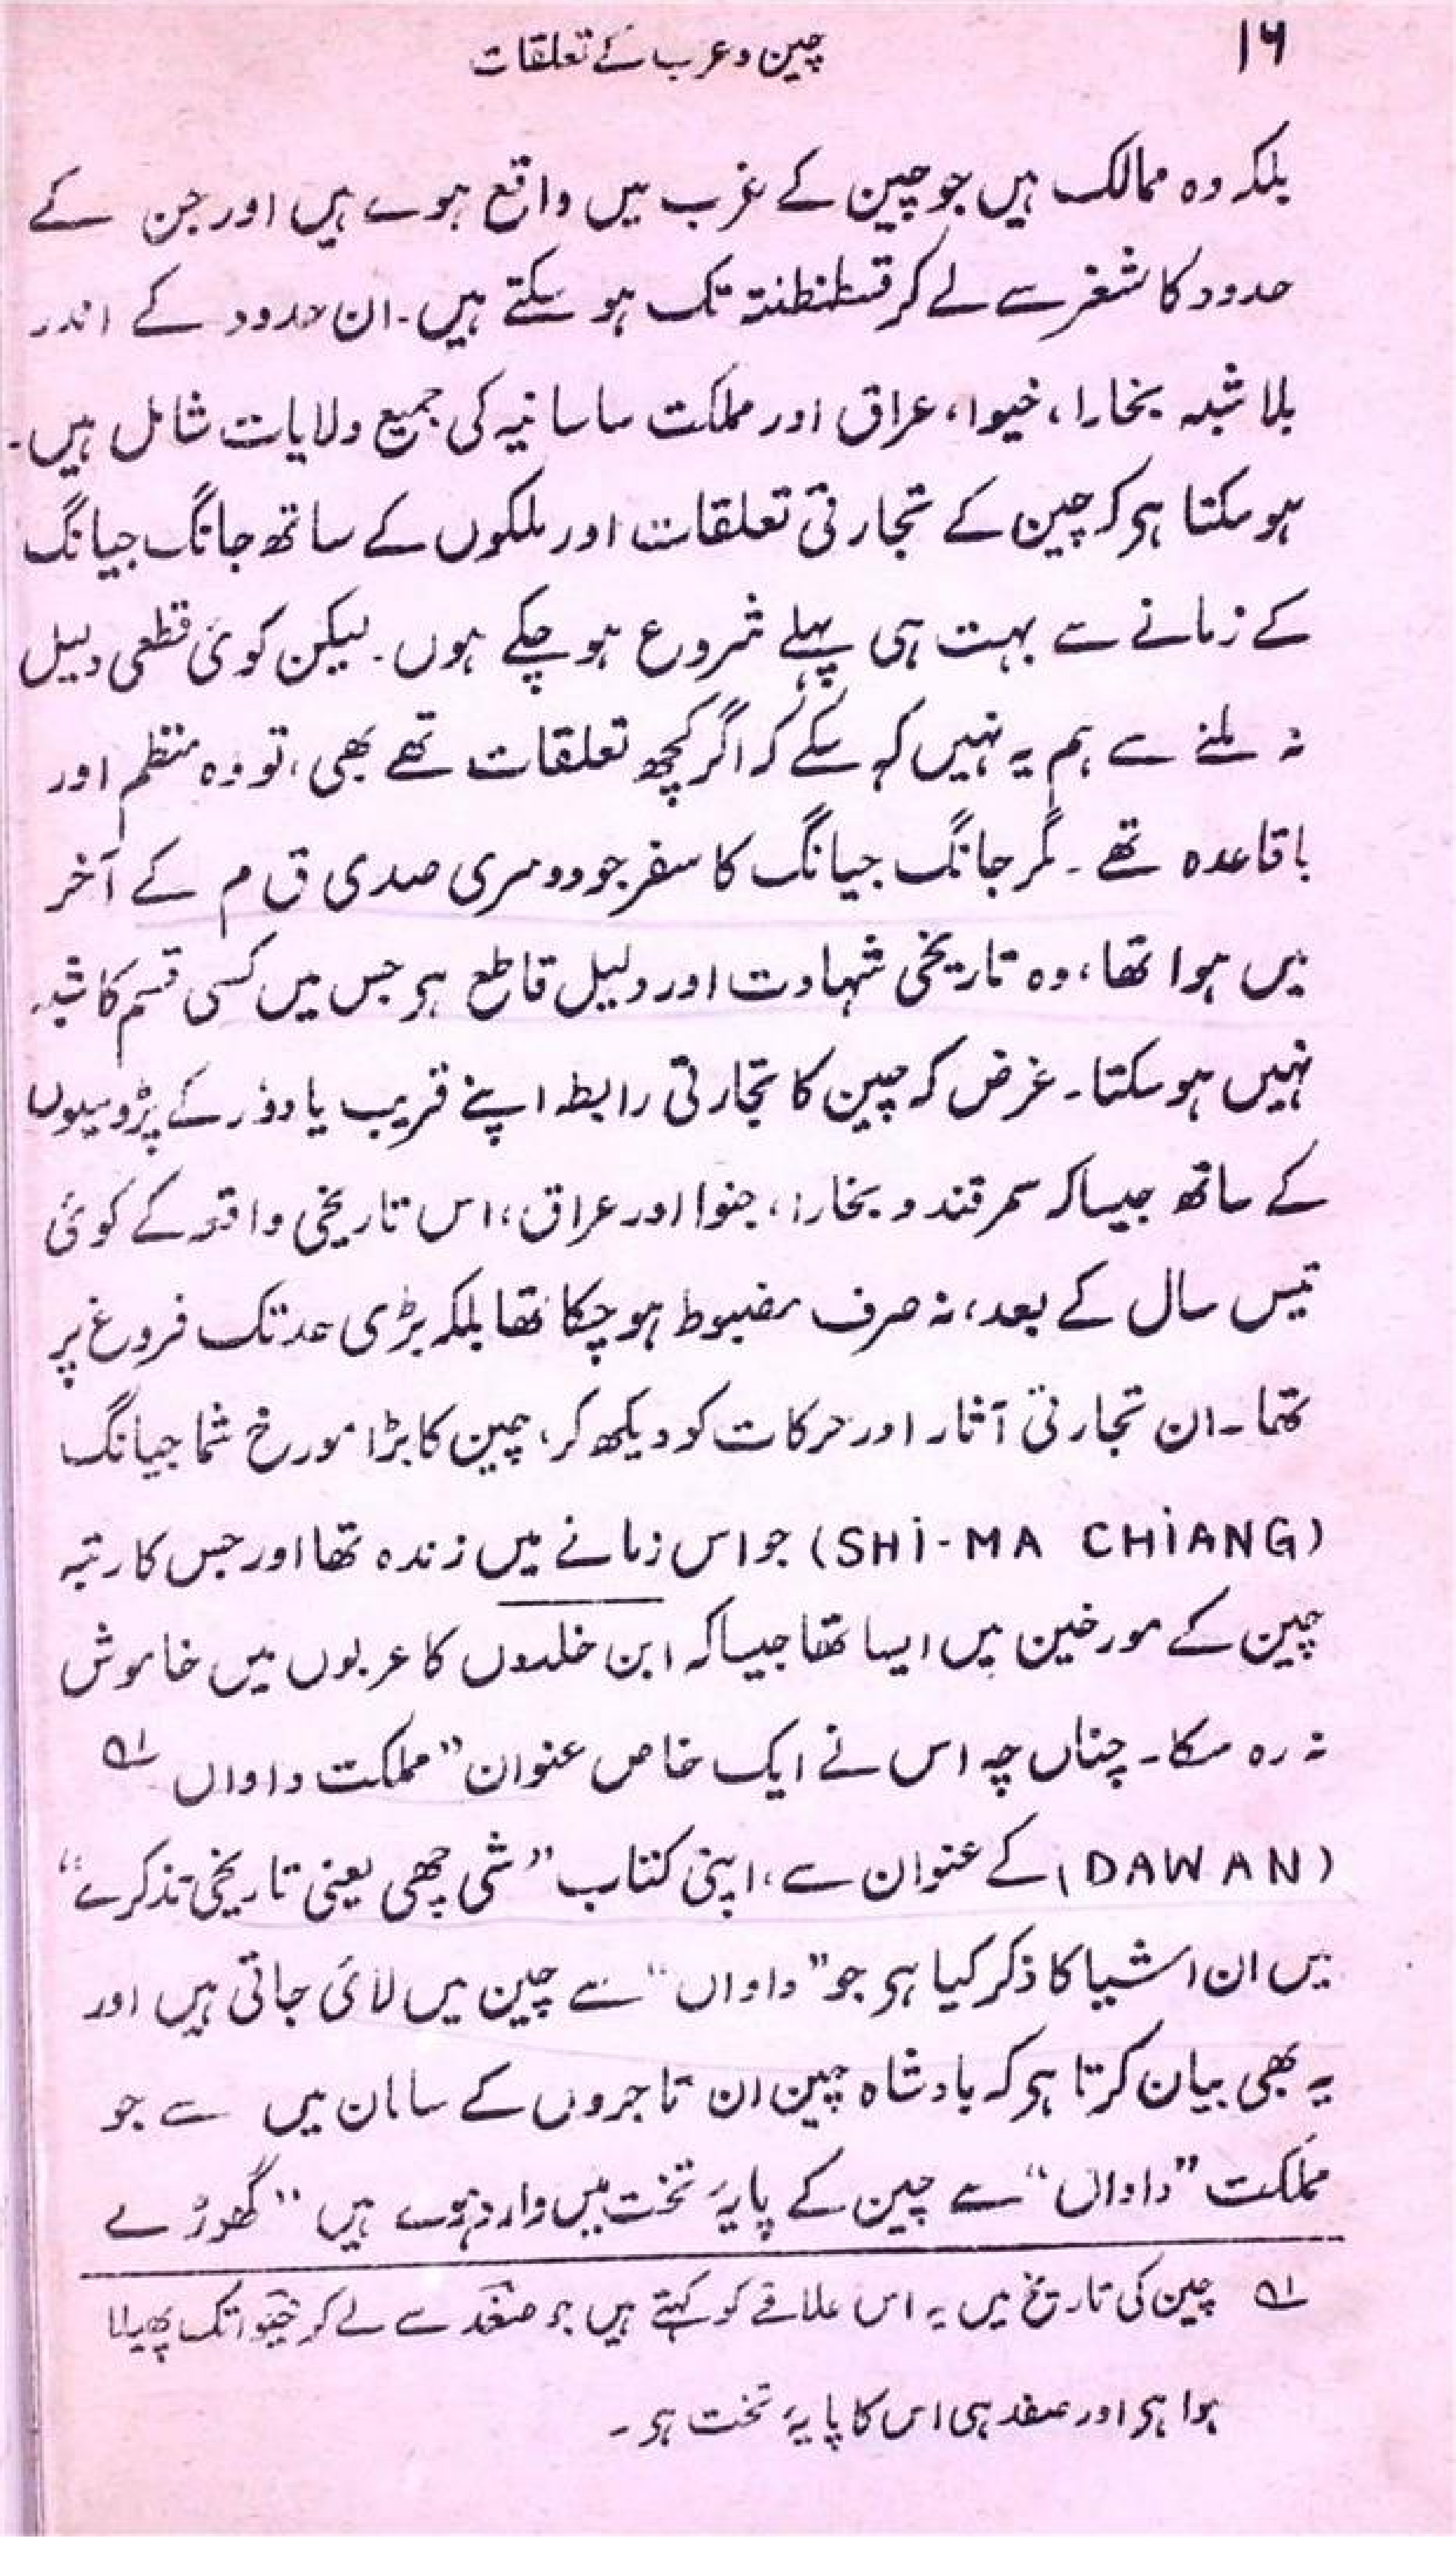 ۱۶
چین و عرب کے تعلقات
بلکہ وہ ممالک ہیں جو چین کے غرب میں واقع ہوے ہیں اور جن کے
حدود کا شغر سے لے کر قسطنطنتہ تک ہو سکتے ہیں۔ ان حدود کے اندر
بلا شبہ بخارا، خیوا، عراق اور مملکت ساسانیہ کی جمیع ولایات شامل ہیں۔
ہو سکتا ہی کہ چین کے تجارتی تعلقات اور ملکوں کے ساتھ جانگ جیانگ
کے زمانے سے بہت ہی پہلے شروع ہو چکے ہوں۔ لیکن کوئی قطعی دلیل
نہ ملنے سے ہم یہ نہیں کہ سکے کہ اگر کچھ تعلقات تھے بھی، تو وہ منظم اور
با قاعدہ تھے۔ مگر جانگ جیانگ کا سفر جو دوسری صدی ق م کے آخر
میں ہوا تھا، وہ تاریخی شہادت اور دلیل قاطع ہی جس میں کسی قسم کا شبہ
نہیں ہو سکتا۔ غرض کہ چین کا تجارتی رابطہ اپنے قریب یا دور کے پڑوسیوں
کے ساتھ جیسا کہ سمرقند و بخارا، جنوا اور عراق، اس تاریخی واقعہ کے کوئی
تیس سال کے بعد، نہ صرف مضبوط ہو چکا تھا بلکہ بڑی حد تک فروغ پر
تھا۔ ان تجارتی آثار اور حرکات کو دیکھ کر، چین کا بڑا مورخ شما جیانگ
(SHI-MA CHIANG) جو اس زمانے میں زندہ تھا اور جس کا رتبہ
چین کے مورخین میں ایسا تھا جیسا کہ ابن خلدوں کا عربوں میں خاموش
نہ رہ سکا۔ چناں چہ اس نے ایک خاص عنوان ”مملکت داواں لہ
(DAWAN) کے عنوان سے، اپنی کتاب ”شی چھی یعنی تاریخی تذکرے“
میں ان اشیا کا ذکر کیا ہی جو ”داواں“ سے چین میں لائی جاتی ہیں اور
یہ بھی بیان کرتا ہی کہ بادشاہ چین ان تاجروں کے سامان میں سے جو
مملکت ”داواں“ سے چین کے پایۂ تخت میں وارد ہوے ہیں ”گھوڑے
لہ چین کی تاریخ میں یہ اس علاقے کو کہتے ہیں جو صغد سے لے کر خیوا تک پھیلا
ہوا ہی اور صغد ہی اس کا پایۂ تخت ہی۔